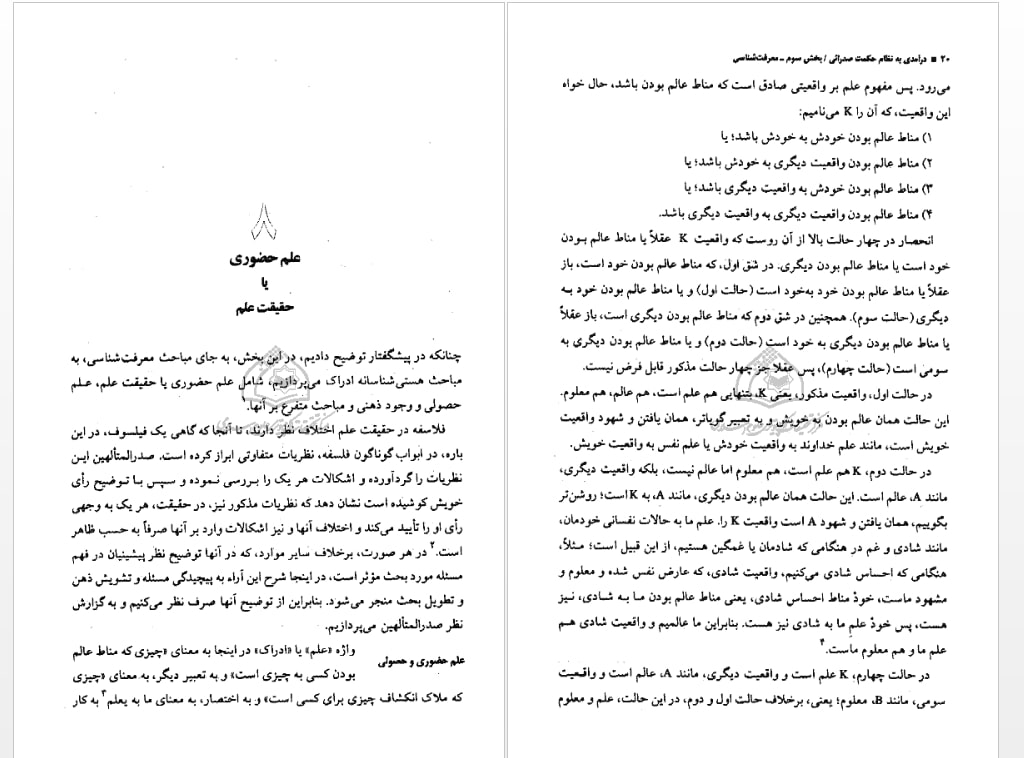 ۸
علم حضوری
یا
حقیقت علم
چنانکه در پیشگفتار توضیح دادیم، در این بخش، به جای مباحث معرفت‌شناسی، به
مباحث هستی‌شناسانه ادراک می‌پردازیم، شامل علم حضوری یا حقیقت علم، علم
حصولی و وجود ذهنی و مباحث متفرع بر آنها.۱
فلاسفه در حقیقت علم اختلاف نظر دارند، تا آنجا که گاهی یک فیلسوف، در این
باره، در ابواب گوناگون فلسفه، نظریات متفاوتی ابراز کرده است. صدرالمتألهین این
نظریات را گردآورده و اشکالات هر یک را بررسی نموده و سپس با توضیح رأی
خویش کوشیده است نشان دهد که نظریات مذکور نیز، در حقیقت، هر یک به وجهی
رأی او را تأیید می‌کند و اختلاف آنها و نیز اشکالات وارد بر آنها صرفاً به حسب ظاهر
است.۲ در هر صورت، برخلاف سایر موارد، که در آنها توضیح نظر پیشینیان در فهم
مسئله مورد بحث مؤثر است، در اینجا شرح این آراء به پیچیدگی مسئله و تشویش ذهن
و تطویل بحث منجر می‌شود. بنابراین از توضیح آنها صرف نظر می‌کنیم و به گزارش
نظر صدرالمتألهین می‌پردازیم.
علم حضوری و حصولی
واژه «علم» یا «ادراک» در اینجا به معنای «چیزی که مناط عالم
بودن کسی به چیزی است» و به تعبیر دیگر، به معنای «چیزی
که ملاک انکشاف چیزی برای کسی است» و به اختصار، به معنای ما به یعلم۳ به کار
۲۰ ■ درآمدی به نظام حکمت صدرائی / بخش سوم ـ معرفت‌شناسی
می‌رود. پس مفهوم علم بر واقعیتی صادق است که مناط عالم بودن باشد، حال خواه
این واقعیت، که آن را K می‌نامیم:
۱) مناط عالم بودن خودش به خودش باشد؛ یا
۲) مناط عالم بودن واقعیت دیگری به خودش باشد؛ یا
۳) مناط عالم بودن خودش به واقعیت دیگری باشد؛ یا
۴) مناط عالم بودن واقعیت دیگری به واقعیت دیگری باشد.
انحصار در چهار حالت بالا از آن روست که واقعیت K عقلاً یا مناط عالم بودن
خود است یا مناط عالم بودن دیگری. در شق اول، که مناط عالم بودن خود است، باز
عقلاً یا مناط عالم بودن خود به‌خود است (حالت اول) و یا مناط عالم بودن خود به
دیگری (حالت سوم). همچنین در شق دوم که مناط عالم بودن دیگری است، باز عقلاً
یا مناط عالم بودن دیگری به خود است (حالت دوم) و یا مناط عالم بودن دیگری به
سومی است (حالت چهارم)، پس عقلا جز چهار حالت مذکور قابل فرض نیست.
در حالت اول، واقعیت مذکور، یعنی K، بتنهایی هم علم است، هم عالم، هم معلوم.
این حالت همان عالم بودن به خویش و به تعبیر گویاتر، همان یافتن و شهود واقعیت
خویش است، مانند علم خداوند به واقعیت خودش یا علم نفس به واقعیت خویش.
در حالت دوم، K هم علم است، هم معلوم اما عالم نیست، بلکه واقعیت دیگری،
مانند A، عالم است. این حالت همان عالم بودن دیگری، مانند A، به K است؛ روشن‌تر
بگوییم، همان یافتن و شهود A است واقعیت K را. علم ما به حالات نفسانی خودمان،
مانند شادی و غم در هنگامی که شادمان یا غمگین هستیم، از این قبیل است؛ مثلاً،
هنگامی که احساس شادی می‌کنیم، واقعیت شادی، که عارض نفس شده و معلوم و
مشهود ماست، خودْ مناط احساس شادی، یعنی مناط عالم بودن ما به شادی، نیز
هست، پس خودْ علمِ ما به شادی نیز هست. بنابراین ما عالمیم و واقعیت شادی هم
علم ما و هم معلوم ماست.۴
در حالت چهارم، K علم است و واقعیت دیگری، مانند A، عالم است و واقعیت
سومی، مانند B، معلوم؛ یعنی، برخلاف حالت اول و دوم، در این حالت، علم و معلوم